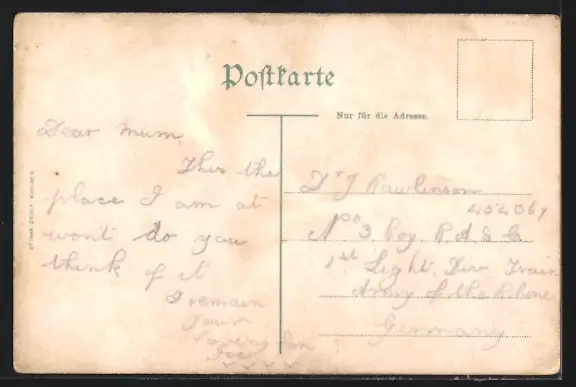 Postkarte
Nur für die Adresse.
Dear Mum
This the
place I am at
wont do you
think of it
I remain
Your
loving Son
Joe
Dr J Rawlinson
454067
No 3 Coy R A S C
1st Light Div Train
Army of the Rhine
Germany